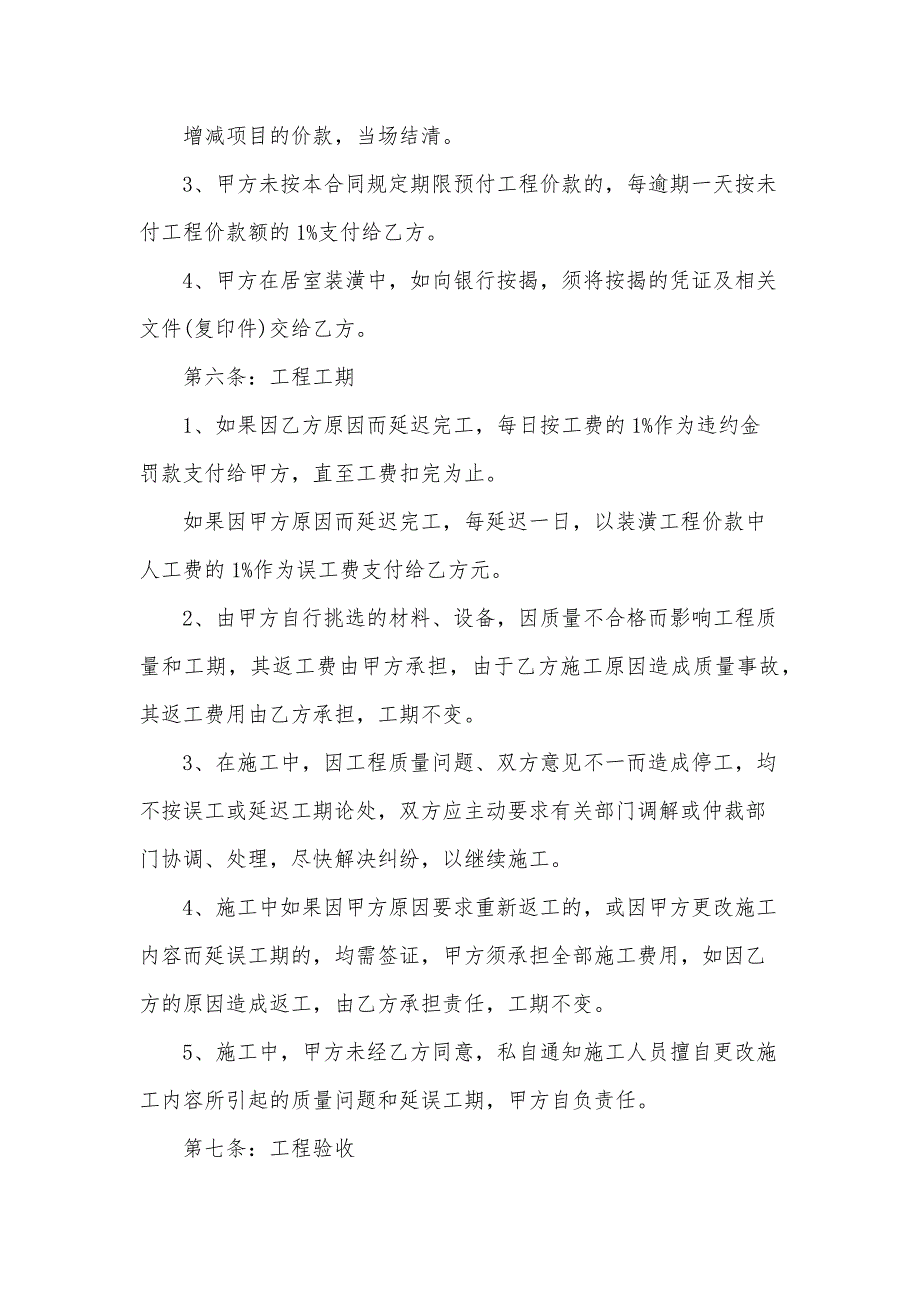 增减项目的价款，当场结清。
3、甲方未按本合同规定期限预付工程价款的，每逾期一天按未
付工程价款额的1%支付给乙方。
4、甲方在居室装潢中，如向银行按揭，须将按揭的凭证及相关
文件(复印件)交给乙方。
第六条：工程工期
1、如果因乙方原因而延迟完工，每日按工费的1%作为违约金
罚款支付给甲方，直至工费扣完为止。
如果因甲方原因而延迟完工，每延迟一日，以装潢工程价款中
人工费的1%作为误工费支付给乙方元。
2、由甲方自行挑选的材料、设备，因质量不合格而影响工程质
量和工期，其返工费由甲方承担，由于乙方施工原因造成质量事故，
其返工费用由乙方承担，工期不变。
3、在施工中，因工程质量问题、双方意见不一而造成停工，均
不按误工或延迟工期论处，双方应主动要求有关部门调解或仲裁部
门协调、处理，尽快解决纠纷，以继续施工。
4、施工中如果因甲方原因要求重新返工的，或因甲方更改施工
内容而延误工期的，均需签证，甲方须承担全部施工费用，如因乙
方的原因造成返工，由乙方承担责任，工期不变。
5、施工中，甲方未经乙方同意，私自通知施工人员擅自更改施
工内容所引起的质量问题和延误工期，甲方自负责任。
第七条：工程验收